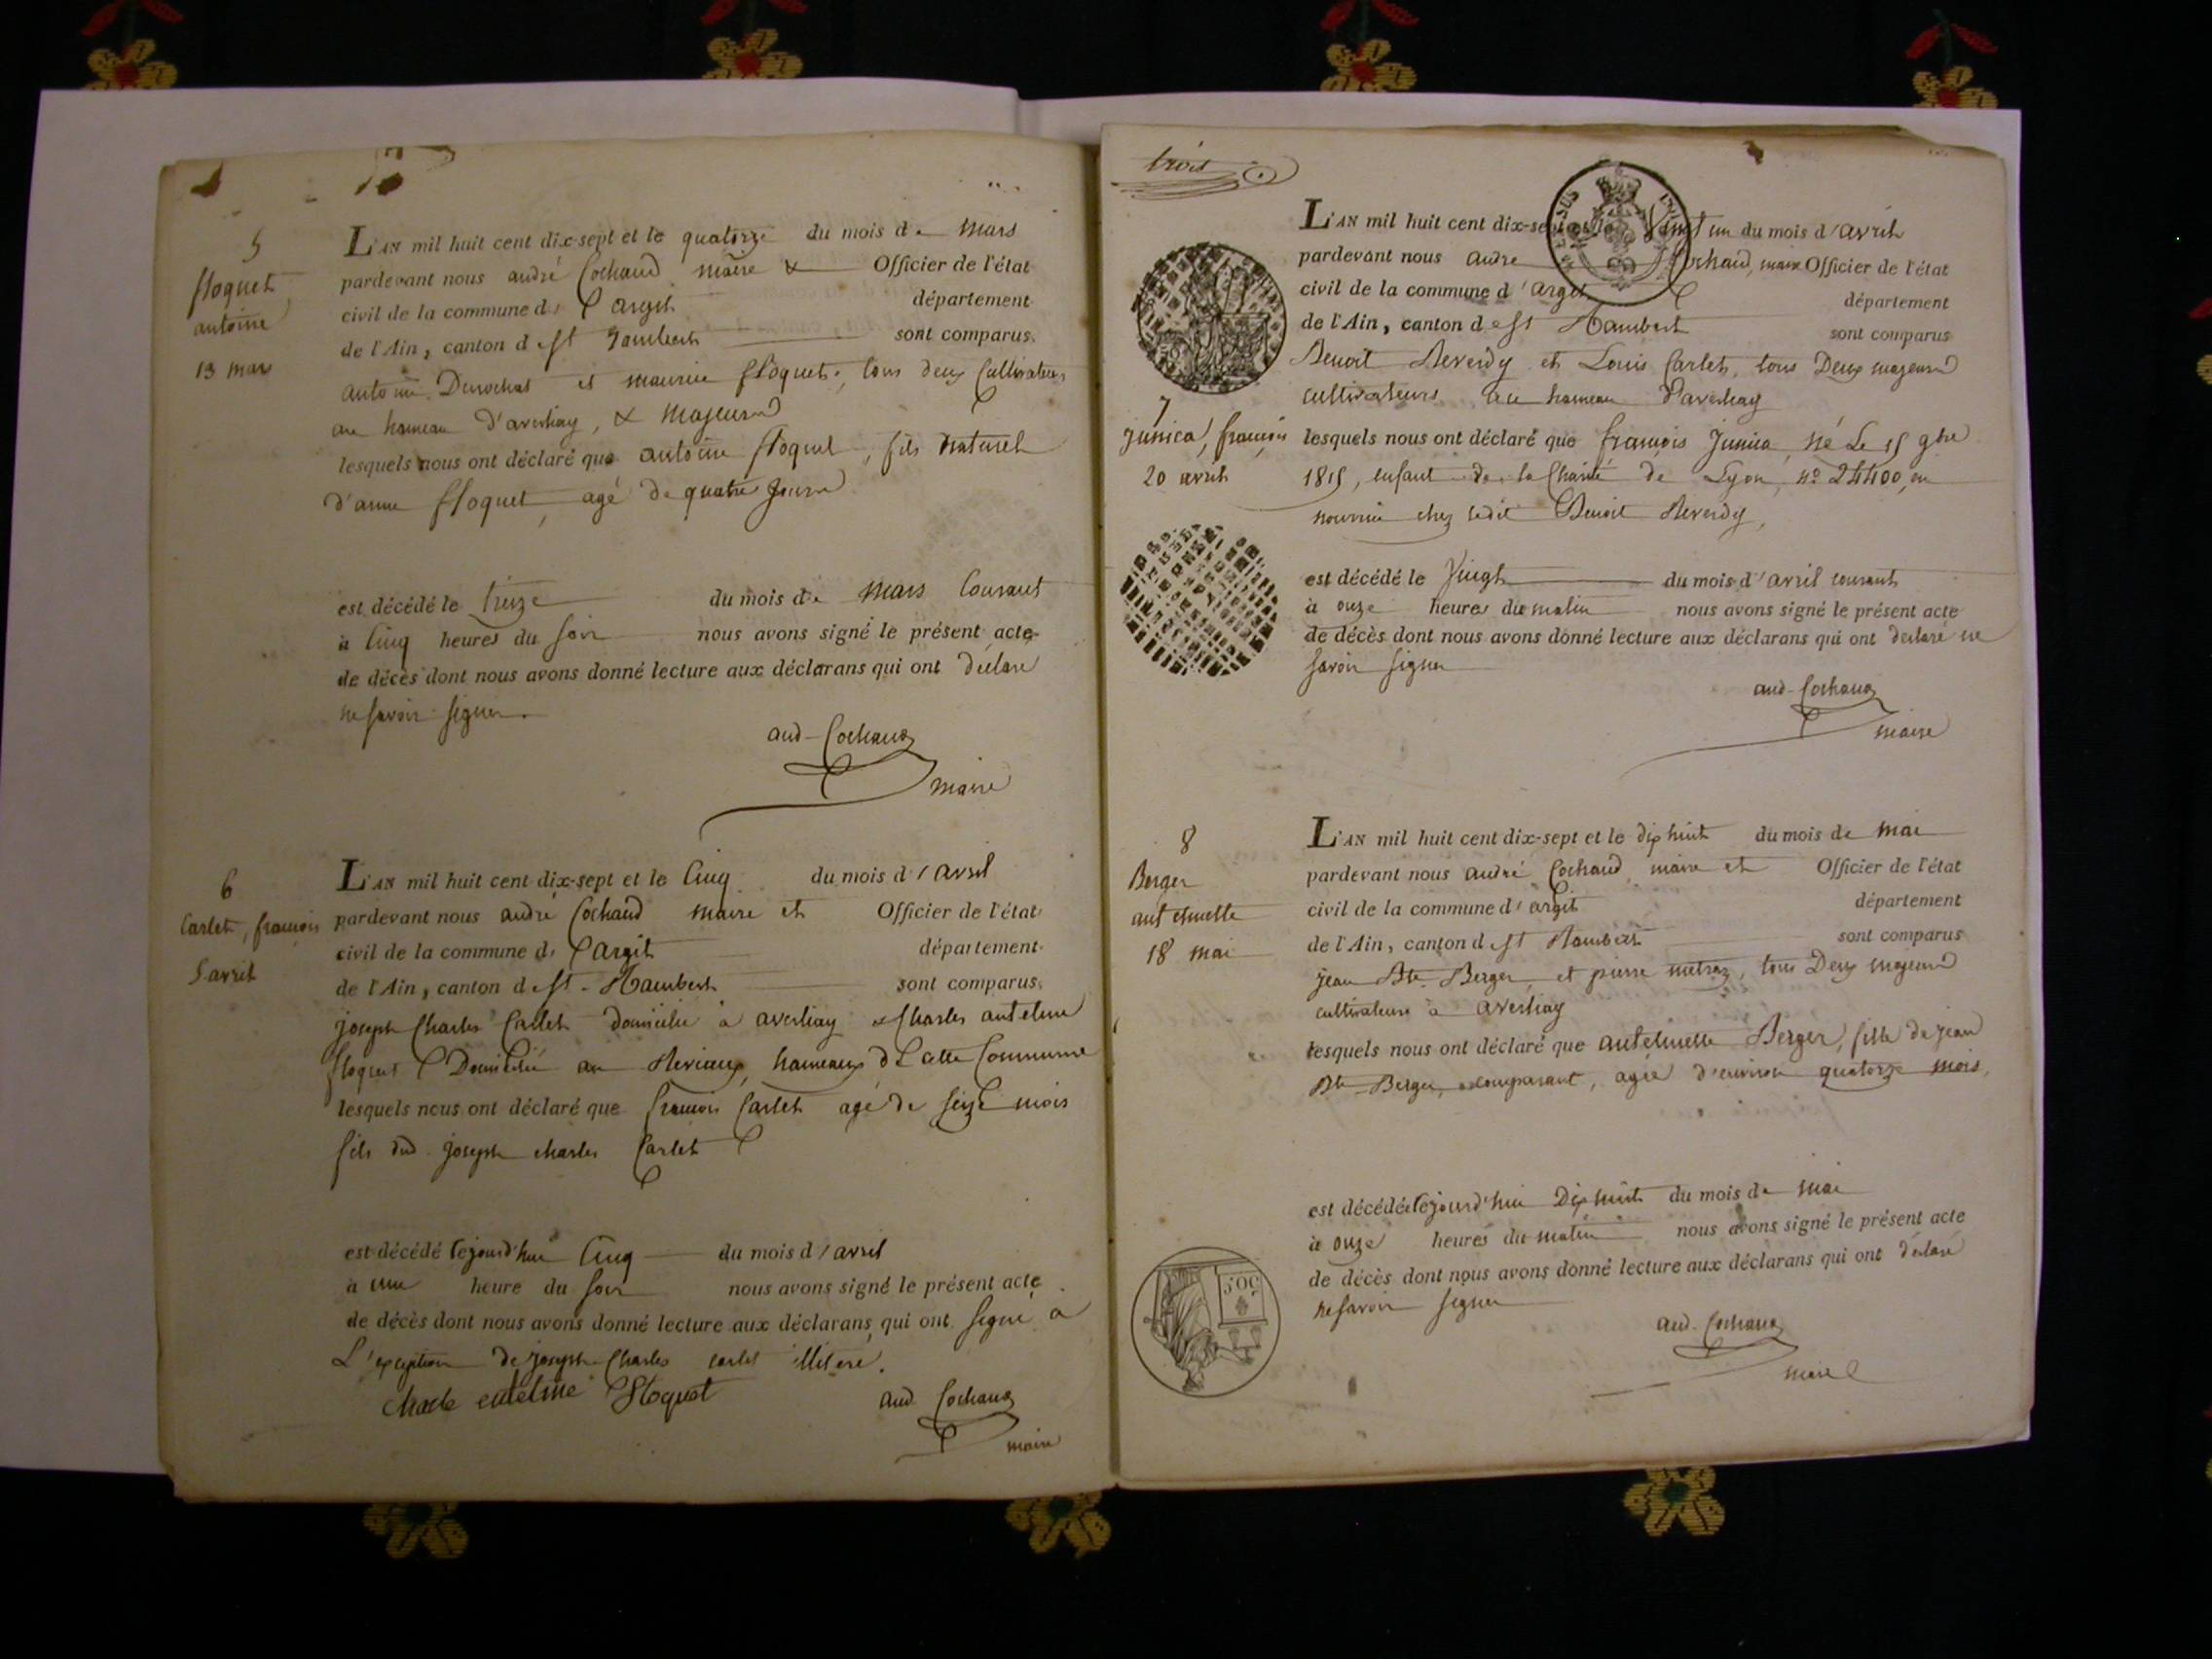 5
floquet
antoine
13 mars
L'AN mil huit cent dix-sept et le quatorze du mois de mars
pardevant nous andré Cochaud maire & Officier de l'état
civil de la commune d' argit département
de l'Ain, canton de St Rambert sont comparus
antoine Durochat et maurice floquet, tous deux Cultivateurs
au hameau d'averliay, & Majeurs
lesquels nous ont déclaré que antoine floquet, fils naturel
d'anne floquet, agé de quatre jours
est décédé le treize du mois de Mars Courant
à Cinq heures du soir nous avons signé le présent acte
de décès dont nous avons donné lecture aux déclarans qui ont déclaré
ne savoir signer.
and Cochaud
maire
6
Carlet, françois
5 avril
L'AN mil huit cent dix-sept et le Cinq du mois d'avril
pardevant nous andré Cochaud maire et Officier de l'état
civil de la commune d' argit département
de l'Ain, canton de St Rambert sont comparus
joseph Charles Carlet domicilié à averliay & Charles antelme
floquet Domicilié au Reviaux, hameaux de Cette Commune
lesquels nous ont déclaré que françois Carlet agé de seize mois
fils dud. joseph charles Carlet
est décédé Cejourd'hui Cinq du mois d'avril
à une heure du soir nous avons signé le présent acte
de décès dont nous avons donné lecture aux déclarans qui ont signé à
L'exception de joseph Charles carlet illiteré.
charle entelme floquet
and Cochaud
maire
trois
L'AN mil huit cent dix-sept et le Vingt un du mois d'avril
pardevant nous andré Cochaud, maire Officier de l'état
civil de la commune d'argit département
de l'Ain, canton de St Rambert sont comparus
Benoit Reverdy et Louis Carlet, tous Deux majeurs
cultivateurs au hameau d'averliay
7
junica, françois
20 avril
lesquels nous ont déclaré que françois Junica, né Le 15 gbre
1815, enfant de la Charité de Lyon, no 24400, en
nourrice chez ledit Benoit Reverdy,
est décédé le Vingt du mois d'avril courant
à onze heures du matin nous avons signé le présent acte
de décès dont nous avons donné lecture aux déclarans qui ont déclaré ne
savoir signer
and Cochaud
maire
8
Berger
antelmette
18 mai
L'AN mil huit cent dix-sept et le dix huit du mois de mai
pardevant nous andré Cochaud maire et Officier de l'état
civil de la commune d'argit département
de l'Ain, canton de St Rambert sont comparus
jean Bte Berger, et pierre metraz, tous Deux majeurs
cultivateurs à averliay
lesquels nous ont déclaré que antelmette Berger, fille de jean
Bte Berger, comparant, agée d'environ quatorze mois,
est décédée Cejourd'hui Dix huit du mois de mai
à onze heures du matin nous avons signé le présent acte
de décès dont nous avons donné lecture aux déclarans qui ont déclaré
ne savoir signer
50c
and. Cochaud
maire